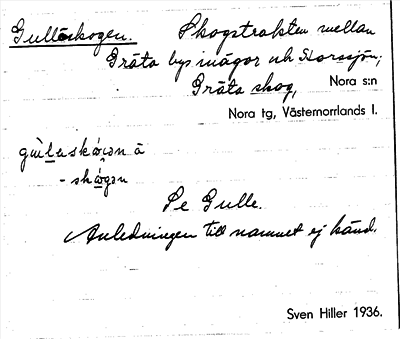 Gulleskogen. Skogstrakten mellan
Gräta bys inägor och Storsjön;
Gräta skog, Nora s:n
Nora tg, Västernorrlands l.
Se Gulle.
Anledningen till namnet ej känd.
Sven Hiller 1936.